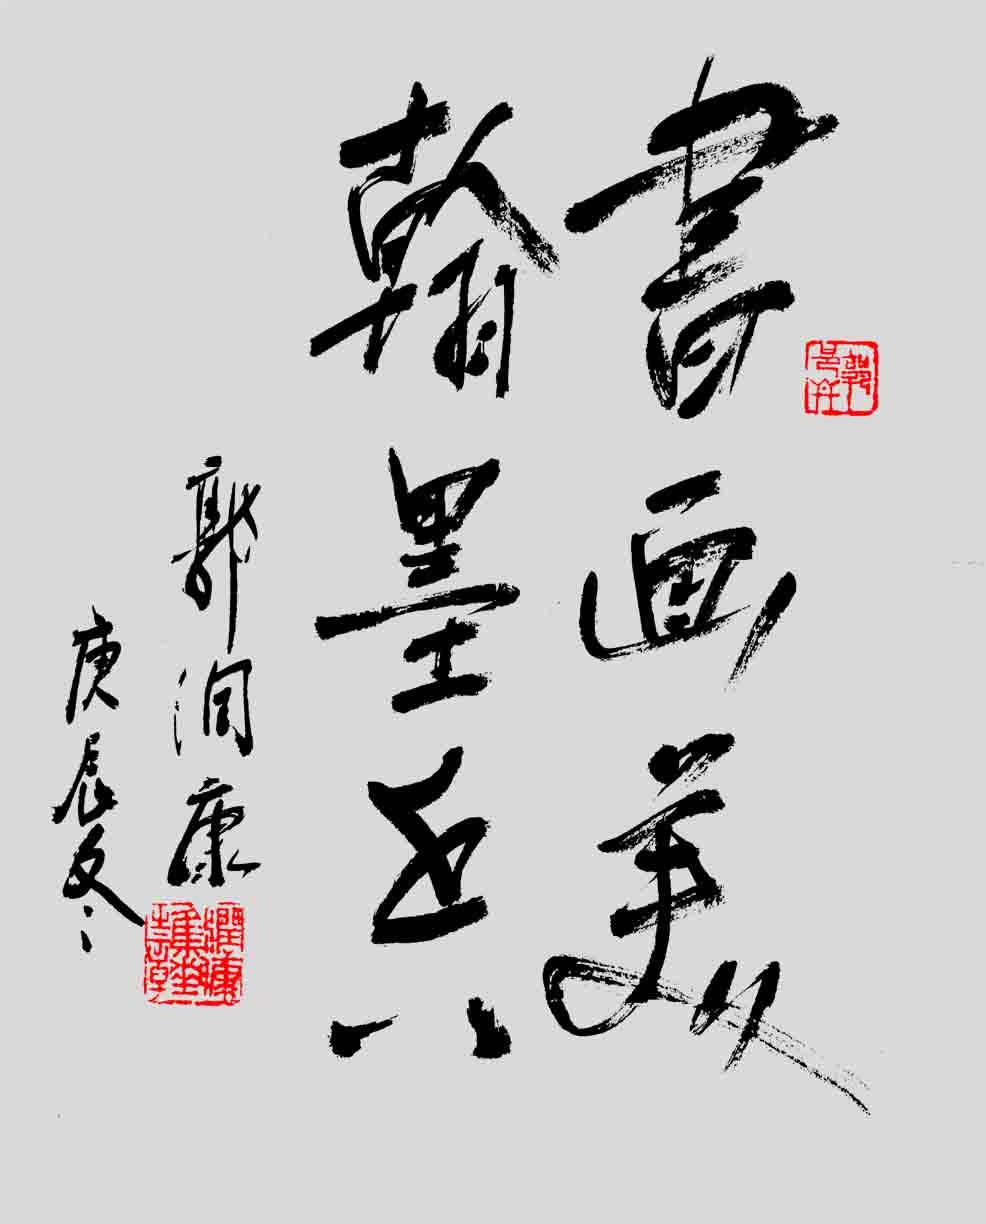 書画美
翰墨真
郭润康
庚辰冬